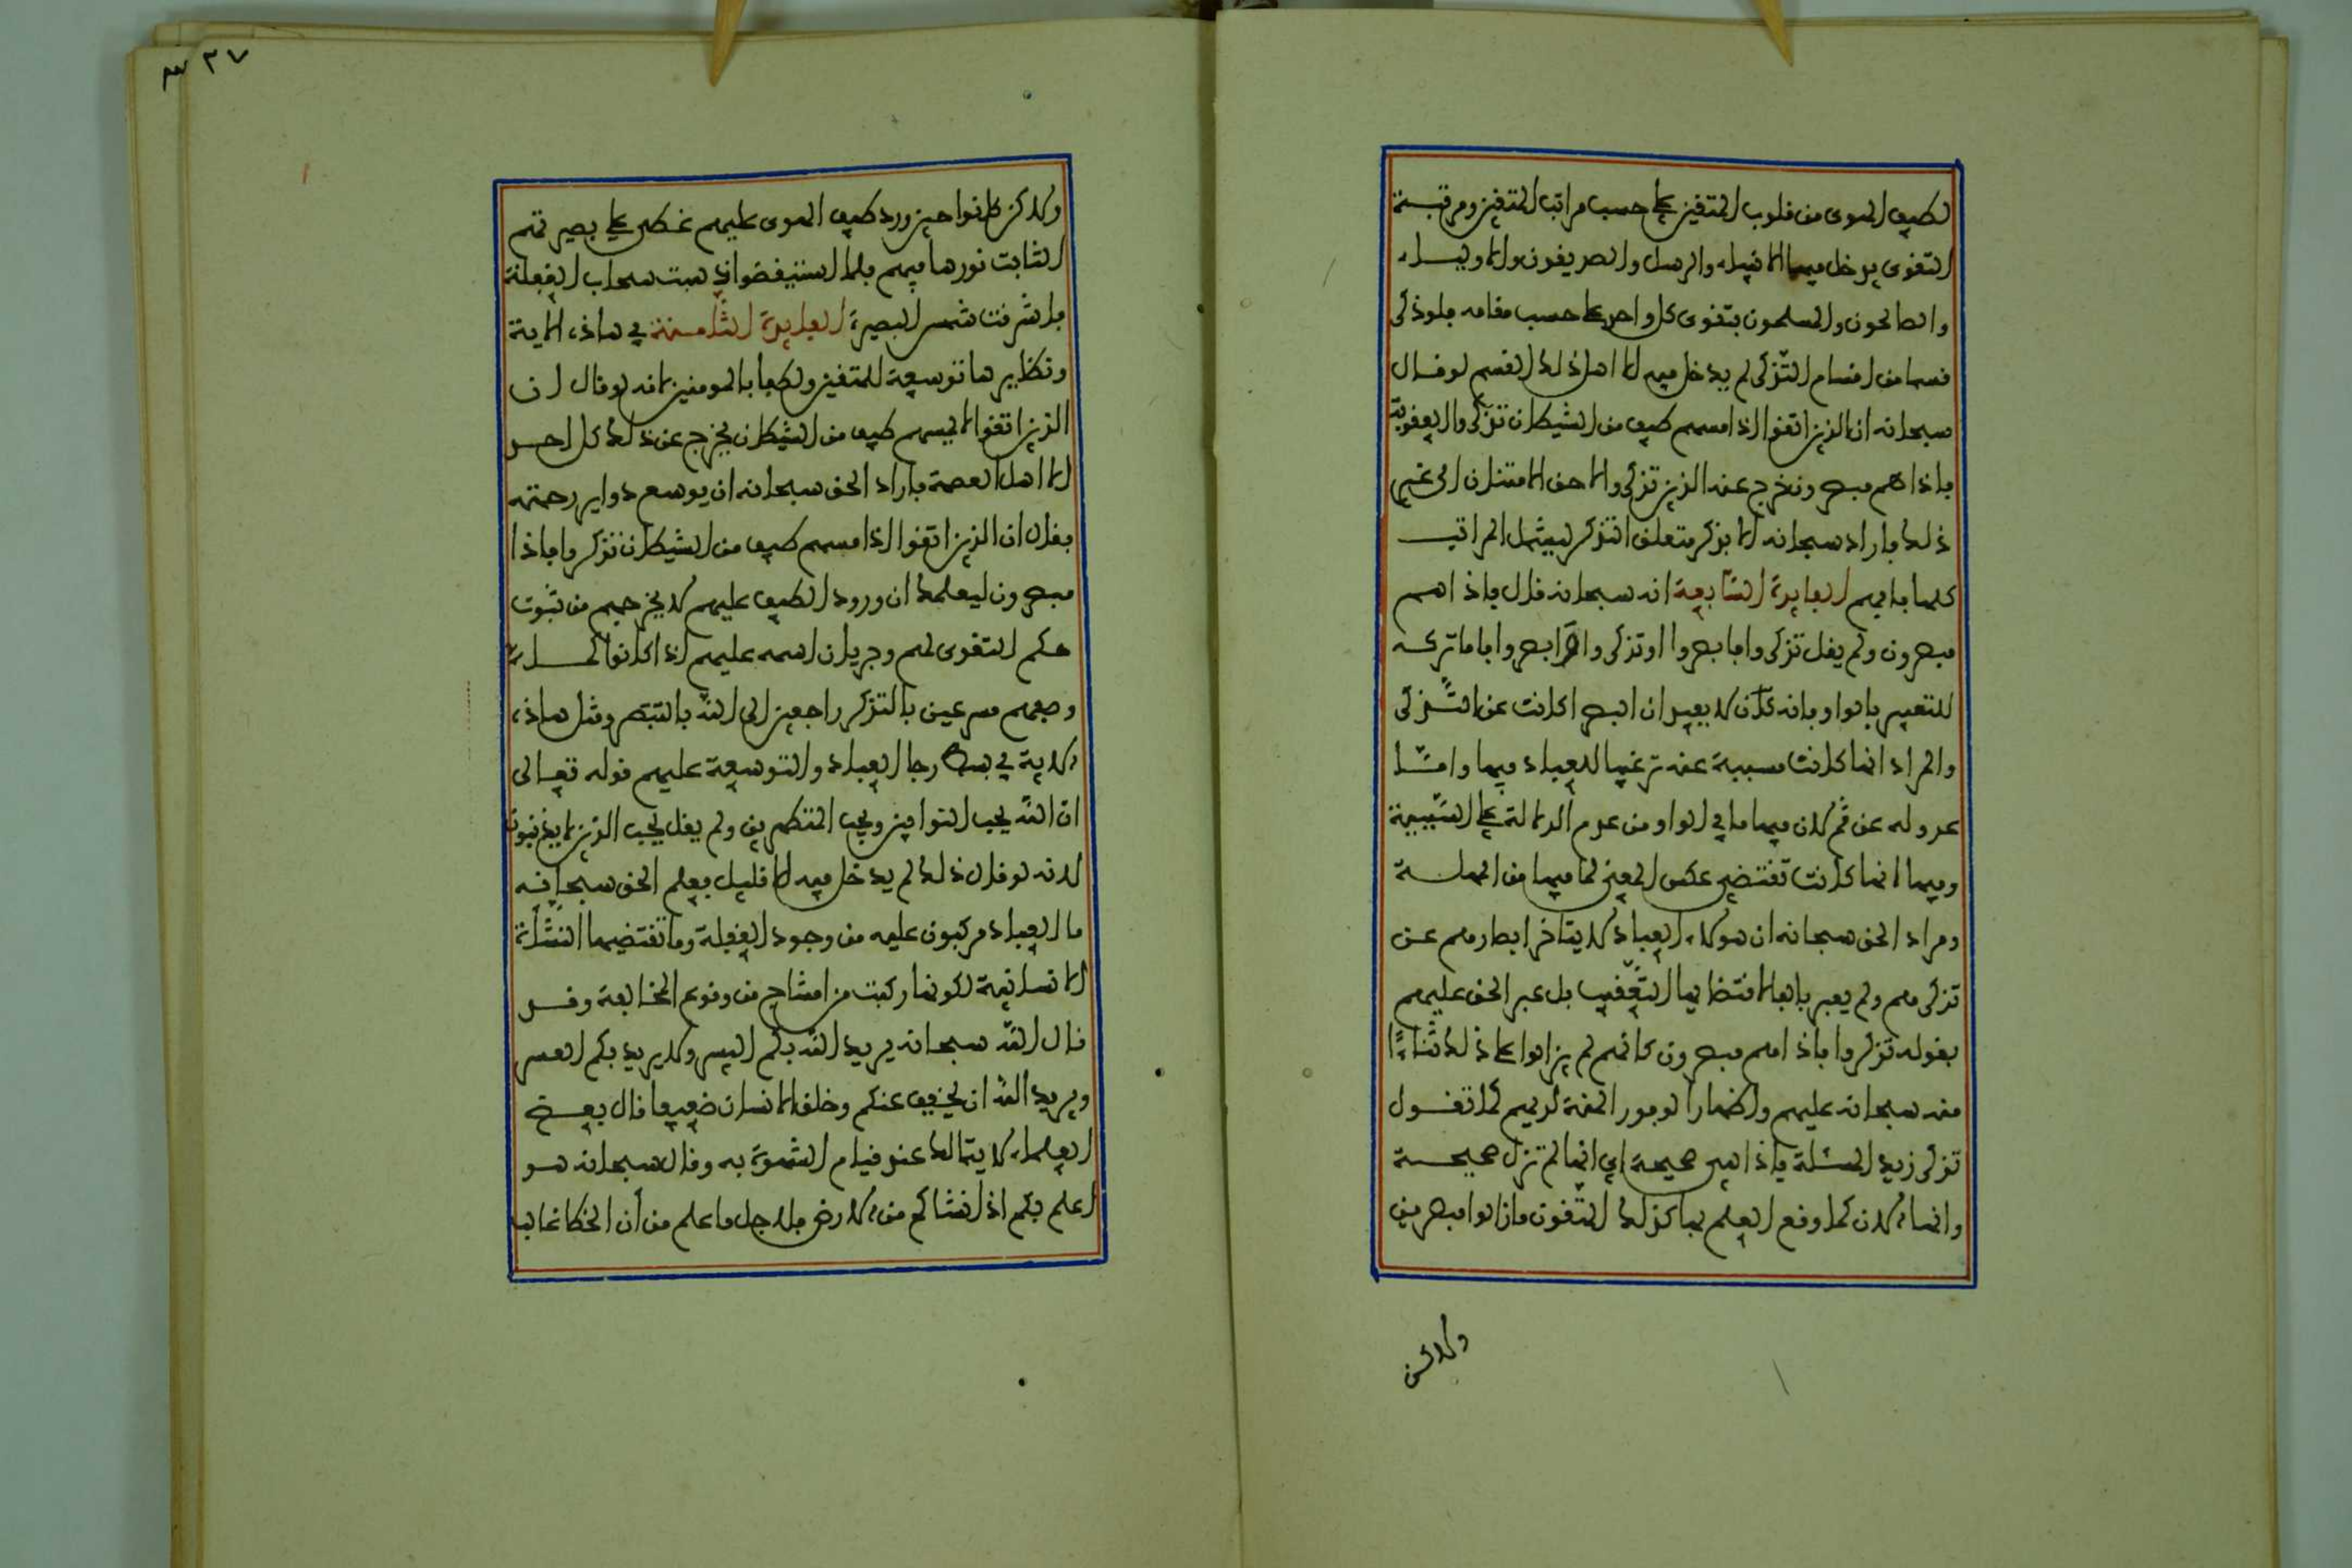 لطيف الهوى من قلوب المتقين على حسب مراتب المتقين ومرتبة
التقوى يدخل فيها الانبياء والرسل والصديقون والاولياء
والصالحون والمسلمون بتقوى كل واحد على حسب مقامه فلو ذكر
قسما من اقسام التذكر لم يدخل فيه الا اهل ذلك القسم لو قال
سبحانه ان الذين اتقوا اذا مسهم طيف من الشيطان تذكروا العقوبة
فاذا هم مبصرون خرج عنه الذين تذكروا لاحق الامتنان الى غير
ذلك فاراد سبحانه الا يذكر متعلق التذكر ليشمل المراتب
كلها فافهم الفايدة السابعة انه سبحانه قال فاذا هم
مبصرون ولم يقل تذكروا فابصروا او تذكروا وابصروا فاما تركه
للتعبير بالواو فانه كان لا يفيد ان البصر اكانت عن التذكر
والمراد انها كانت مسببة عنه ترغيبا للعباد فيها واما
عدوله عن ثم لان فيها ما في الواو من عدم الدلالة على السببية
وفيها انها كانت تقتضي عكس المعنى لما فيها من المهلة
ومراد الحق سبحانه ان هولاء العباد لا يتاخر ابصارهم عن
تذكرهم ولم يعبر بالفا لاقتضايها التعقيب بل عبر الحق عليهم
بقوله تذكروا فاذا هم مبصرون كانهم لم يزالوا على ذلك ثناءً
منه سبحانه عليهم واظهارا لوفور المنة لديهم كما تقول
تذكر زيد المسئلة فاذا هي صحيحة اي انها لم تزل صحيحة
وانما الان كما وقع العلم بها كذلك المتقون ما زالوا مبصرين
ولاكن
٣٧
ولاكن كانوا حين ورد طيف الهوى عليهم غطى على بصيرتهم
الثابت نورها فيهم فلما استيقظوا ذهبت سحاب الغفلة
فاشرقت شمس البصيرة الفايدة الثامنة في هاذه الاية
ونظيرها توسعة للمتقين ولطفا بالمومنين لانه لو قال ان
الذين اتقوا لا يمسهم طيف من الشيطان لخرج عن ذلك كل احد
الا اهل العصمة فاراد الحق سبحانه ان يوسع دواير رحمته
فقال ان الذين اتقوا اذا مسهم طيف من الشيطان تذكروا فاذا
مبصرون ليعلمك ان ورود الطيف عليهم لا يخرجهم من ثبوت
حكم التقوى لهم وجريان اسمه عليهم اذا كانوا كما
وصفهم مسرعين بالتذكر راجعين الى الله بالتبصر ومثل هاذه
الاية في رجا العباد والتوسعة عليهم قوله تعالى
ان الله يحب التوابين ويحب المتطهرين ولم يقل يحب الذين لا يذنبون
لانه لو قال ذلك لم يدخل فيه الا قليل فعلم الحق سبحانه
ما العباد مركبون عليه من وجود الغفلة وما تقتضيها النشأة
الانسانية لكونها ركبت من امشاج من وقوع المخالفة وقد
قال الله سبحانه يريد الله بكم اليسر ولا يريد بكم العسر
ويريد الله ان يخفف عنكم وخلق الانسان ضعيفا قال بعض
العلماء لا يتمالك عند قيام الشهوة به وقال سبحانه هو
اعلم بكم اذ انشاكم من الارض فلاجل ما علم من أن الخطا غالب